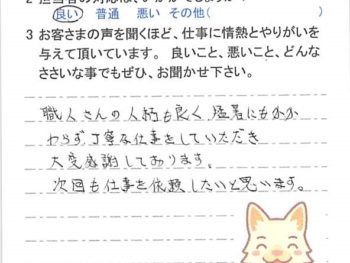 2 担当者の対応は、いかがでしたか？
良い 普通 悪い その他( )
3 お客さまの声を聞くほど、仕事に情熱とやりがいを
与えて頂いています。 良いこと、悪いこと、どんな
ささいな事でもぜひ、お聞かせ下さい。
職人さんの人柄も良く、猛暑にもかか
わらず丁寧な仕事をしていただき
大変感謝しております。
次回も仕事を依頼したいと思います。